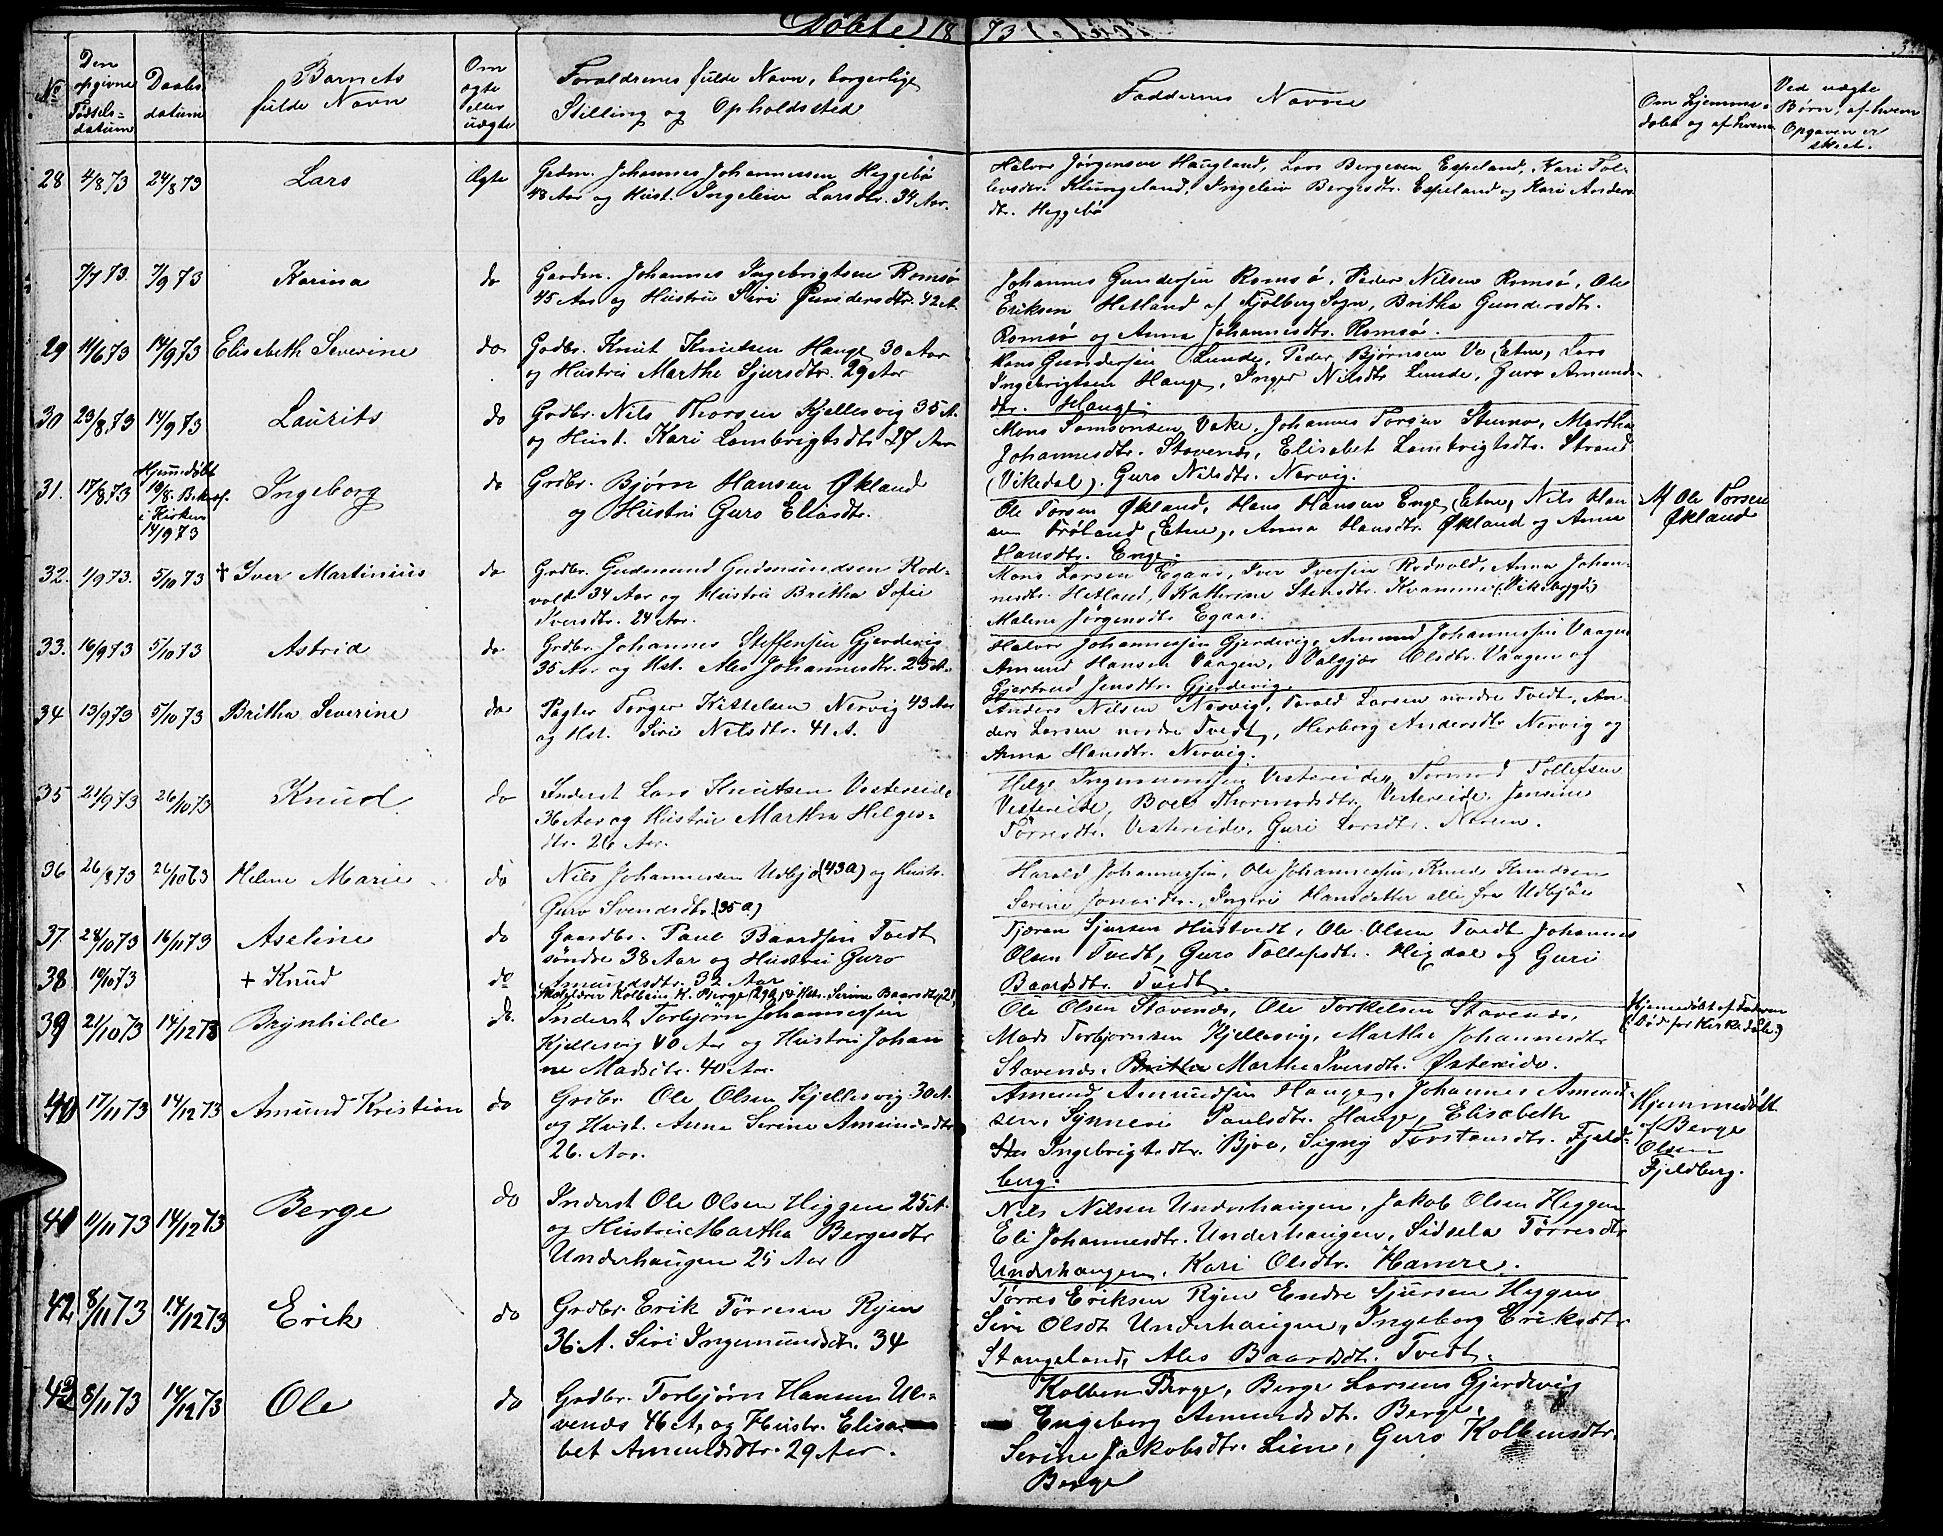 Døbte 1873
No
Den opgivne Fødsels-datum
Daabs datum
Barnets fulde Navn
Om ægte eller uægte
Forældrenes fulde Navn, borgerlige Stilling og Opholdssted
Faddernes Navne
Om hjemme-døbt og af hvem
Ved uægte Børn, af hvem Opgaven er skeet.
28 4/8 73 24/8 73 Lars Ægte Gdm. Johannes Johannessen Heggebø
48 Aar og Hust. Ingeleiv Larsdtr. 34 Aar.
Halvor Jørgensen Haugland, Lars Bergesen Espeland, Kari Tol-
levsdtr. Klungeland, Ingeleiv Bergesdtr. Espeland og Kari Anders
dtr. Heggebø
7/7 73. 7/9 73 Karina do Gaardm. Johannes Ingebrigtsen Romsø
45 Aar og Hustru Siri Gundersdtr. 42 A.
Johannes Gundersen Romsø, Peder Nilsen Romsø, Ole
Eriksen Hetland af Fjelberg Sogn, Britha Gundersdtr.
Romsø og Anna Johannesdtr. Romsø.
29 11/6 73 14/9 73 Elisabeth Severine do Grdbr. Knut Knutsen Hauge 30 Aar
og Hustru Marthe Sjursdtr. 29 Aar
Hans Gundersen Lunde, Peder Bjørnsen Vo (Etne), Lars
Ingebrigtsen Hauge, Inger Nilsdtr. Lunde, Guro Amunds-
dtr. Hauge.
30 23/8 73 14/9 73 Laurits do Grdbr. Nils Thorsen Kjellesvig 35 A.
og Hust. Kari Lambrigtsdtr. 27 Aar
Mons Samsonsen Vake, Johannes Torsen Stumo, Martha
Johannesdtr. Stavenes, Elisabet Lambrigtsdtr. Strand
(Vikedal). Guro Nilsdtr. Nervig.
31. 17/8 73 Hjemmedøbt 19/8. Bekræf. i Kirken 14/9 73 Ingeborg do Grdbr. Bjørn Hansen Økland
og Hustru Guro Eliasdtr.
Ole Torsen Økland, Hans Hansen Enge (Etne), Nils Han
sen Frøland (Etne), Anna Hansdtr. Økland og Anna
Hansdtr. Enge.
Af Ole Torsen
Økland
32. 1/9 73. 5/10 73 † Iver Martinius do Grdbr. Gudmund Gudmundsen Rod-
vold 34 Aar og Hustru Britha Sofie
Iversdtr. 24 Aar.
Mons Larsen Egaas, Iver Iversen Rodvold, Anna Johan-
nesdtr. Hetland, Kathrine Stensdtr. Kvamme (Vikebygd)
Malene Jørgensdtr. Egaas.
33. 16/9 73 5/10 73 Astrid do Grdbr. Johannes Steffensen Gjerdevig
35 Aar og Hst. Ales Johannesdtr. 25 A.
Halvor Johannessen Gjerdevig, Amund Johannessen Vaagen
Amund Hansen Vaagen, Valgjær Olsdtr. Vaagen og
Gjertrud Jensdtr. Gjerdevig.
34 13/9 73 5/10 73 Britha Severine do Pagter Torger Kittelsen Nervig 43 Aar
og Hst. Siri Nilsdtr. 41 A.
Anders Nilsen Nervig, Torald Larsen nordre Tvedt, An-
ders Larsen nordre Tvedt, Herborg Andersdtr. Nervig og
Anna Hansdtr. Nervig.
35 21/9 73 26/10 73 Knud do Inderst Lars Knutsen Vestereide
36 Aar og Hustru Martha Helges-
dtr. 26 Aar.
Helge Ingemundsen Vestereide, Tormod Tollefsen
Vestereide, Boel Thormodsdtr. Vestereide, Jensine
Tørresdtr. Vestereide, Guri Larsdtr. Næsen.
36 26/8 73 26/10 73 Helene Marie do Nils Johannesen Udbjo (43 a) og Hustr.
Guro Svendsdtr. (35 a)
Harald Johannessen, Ole Johannessen, Knud Knudsen
Serine Jonasdtr., Ingeri Hansdatter alle fra Udbjoe
37 28/10 73 16/11 73 Aseline do Gaardbr. Paul Baardsen Tvedt
søndre 38 Aar og Hustru Guro
Amundsdtr. 32 Aar
Tjøran Sjursen Hustvedt, Ole Olsen Tvedt Johannes
Olsen Tvedt, Guro Tollefsdtr. Higdal og Guri
Baardsdtr. Tvedt.
38 19/10 73 † Knud do Skolelærer Kolbein K. Berge (29 a) & Hstr. Serine Baardsdtr. 21
Hjemmedøbt af Faderen
(Død før Kirkedåb.)
39 21/10 73 14/12 73 Brynhilde do. Inderst Torbjørn Johannessen
Kjellesvig 40 Aar og Hustru Johan
ne Madsdtr. 40 Aar.
Ole Olsen Stavenes, Ole Torkelsen Stavenes,
Mads Torbjørnsen Kjellesvig, Marthe Johannesdtr.
Stavenes. Britha Martha Iversdtr. Østereide.
40 17/11 73 14/12 73 Amund Kristian do Grdbr. Ole Olsen Kjellesvig 30 A.
og Hust. Anna Serine Amundsdtr.
26. Aar.
Amund Amundsen Hauge, Johannes Amund
sen, Synneve Paulsdtr. Hauge, Elisabeth
Ingebrigtsdtr. Bjoe, Signy Torstensdtr. Fjeld-
berg.
Hjemmedøbt
af Berge
Olsen
Fjeldberg.
41 11/11 73 14/12 73 Berge do Inderst Ole Olsen Heggen 25 A.
og Hustru Martha Bergesdtr.
Underhaugen 25 Aar
Nils Nilsen Underhaugen, Jakob Olsen Heggen
Eli Johannesdtr. Underhaugen, Sidsela Tørresdtr.
Underhaugen, Kari Olsdtr. Hamre.
42 8/11 73 14/12 73 Erik do Grdbr. Erik Tørresen Ryen
36 A. Siri Ingemundsdtr. 34
Tørres Eriksen Ryen Endre Sjursen Heggen
Siri Olsdtr Underhaugen, Ingeborg Eriksdtr.
Stangeland, Ales Baardsdtr. Tvedt.
43 8/11 73 14/12 73 Ole do Grdbr. Torbjørn Hansen Ul-
venes 46 A, og Hustr. Elisa-
bet Amundsdtr. 29 Aar.
Kolben Berge, Berge Larsens Gjerdevig
Engeborg Amundsdtr. Berge,
Serine Jakobsdtr. Lien, Guro Kolbensdtr.
Berge